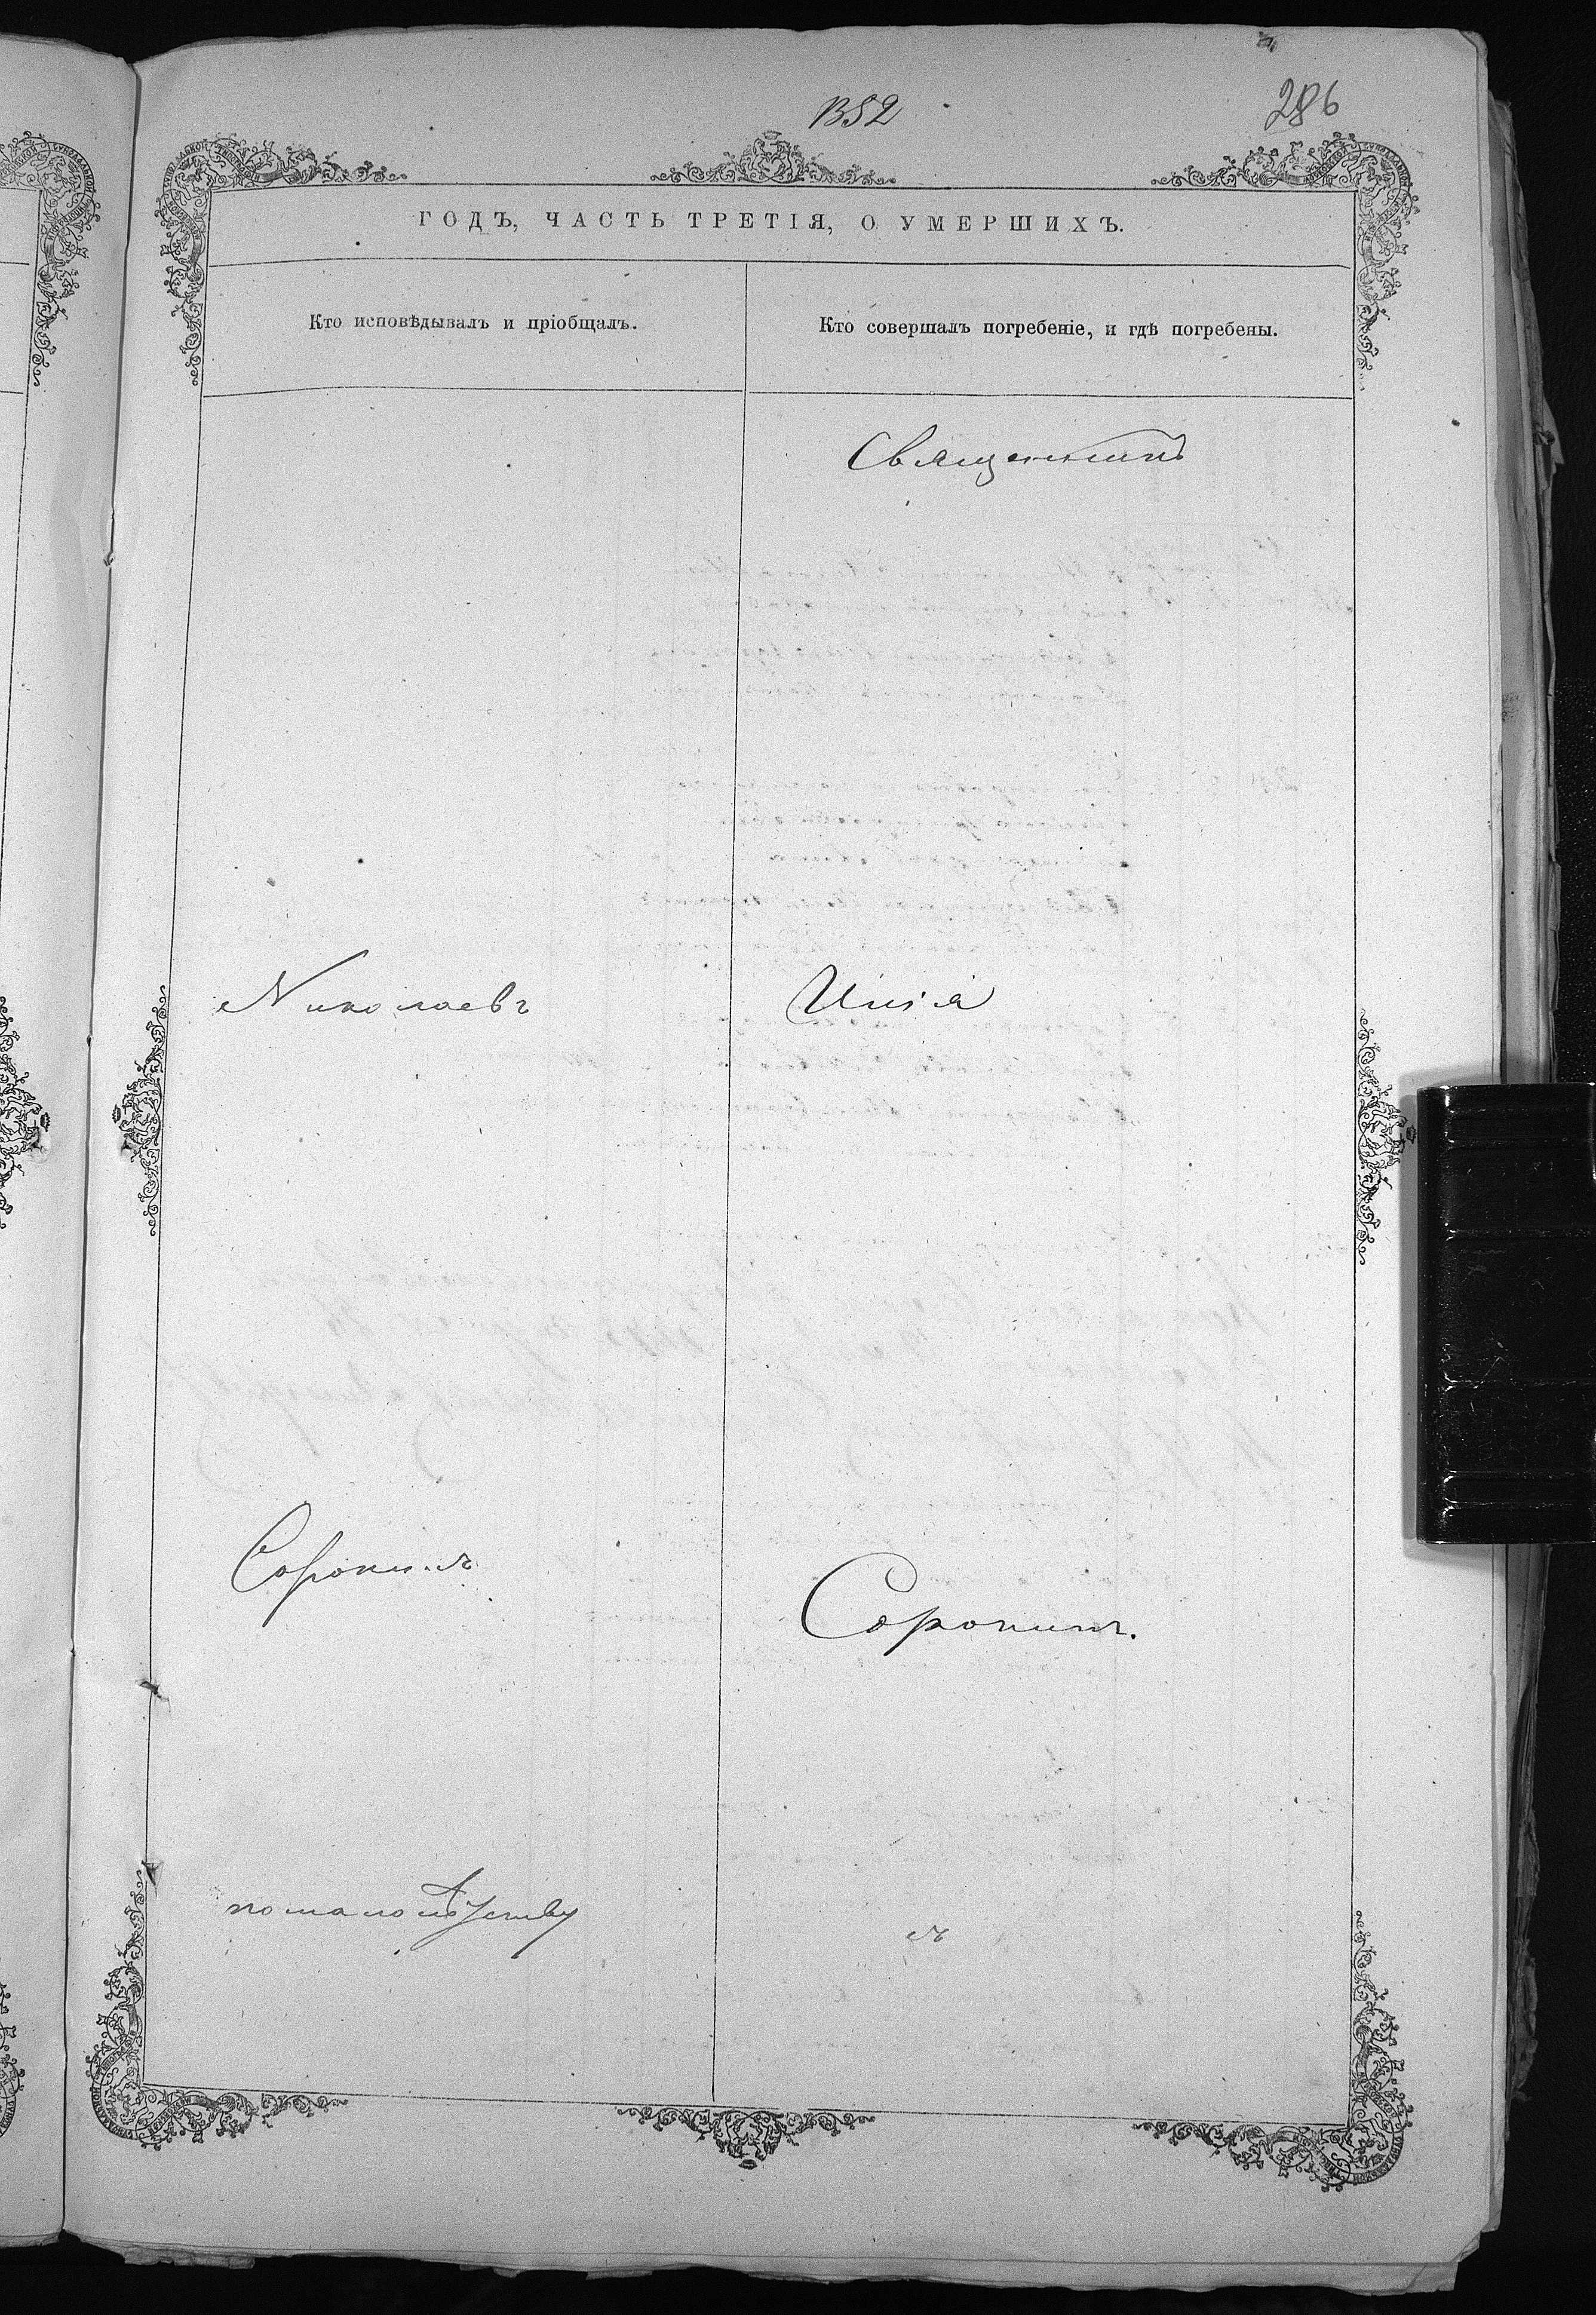 286
ГОДЪ, ЧАСТЬ ТРЕТІЯ, О УМЕРШИХЪ.
Кто исповѣдывалъ и пріобщалъ.
Кто совершалъ погребеніе, и гдѣ погребены.
Священникъ
Николаевъ
Илія
Сорокинъ
Сорокинъ.
по малолѣтству